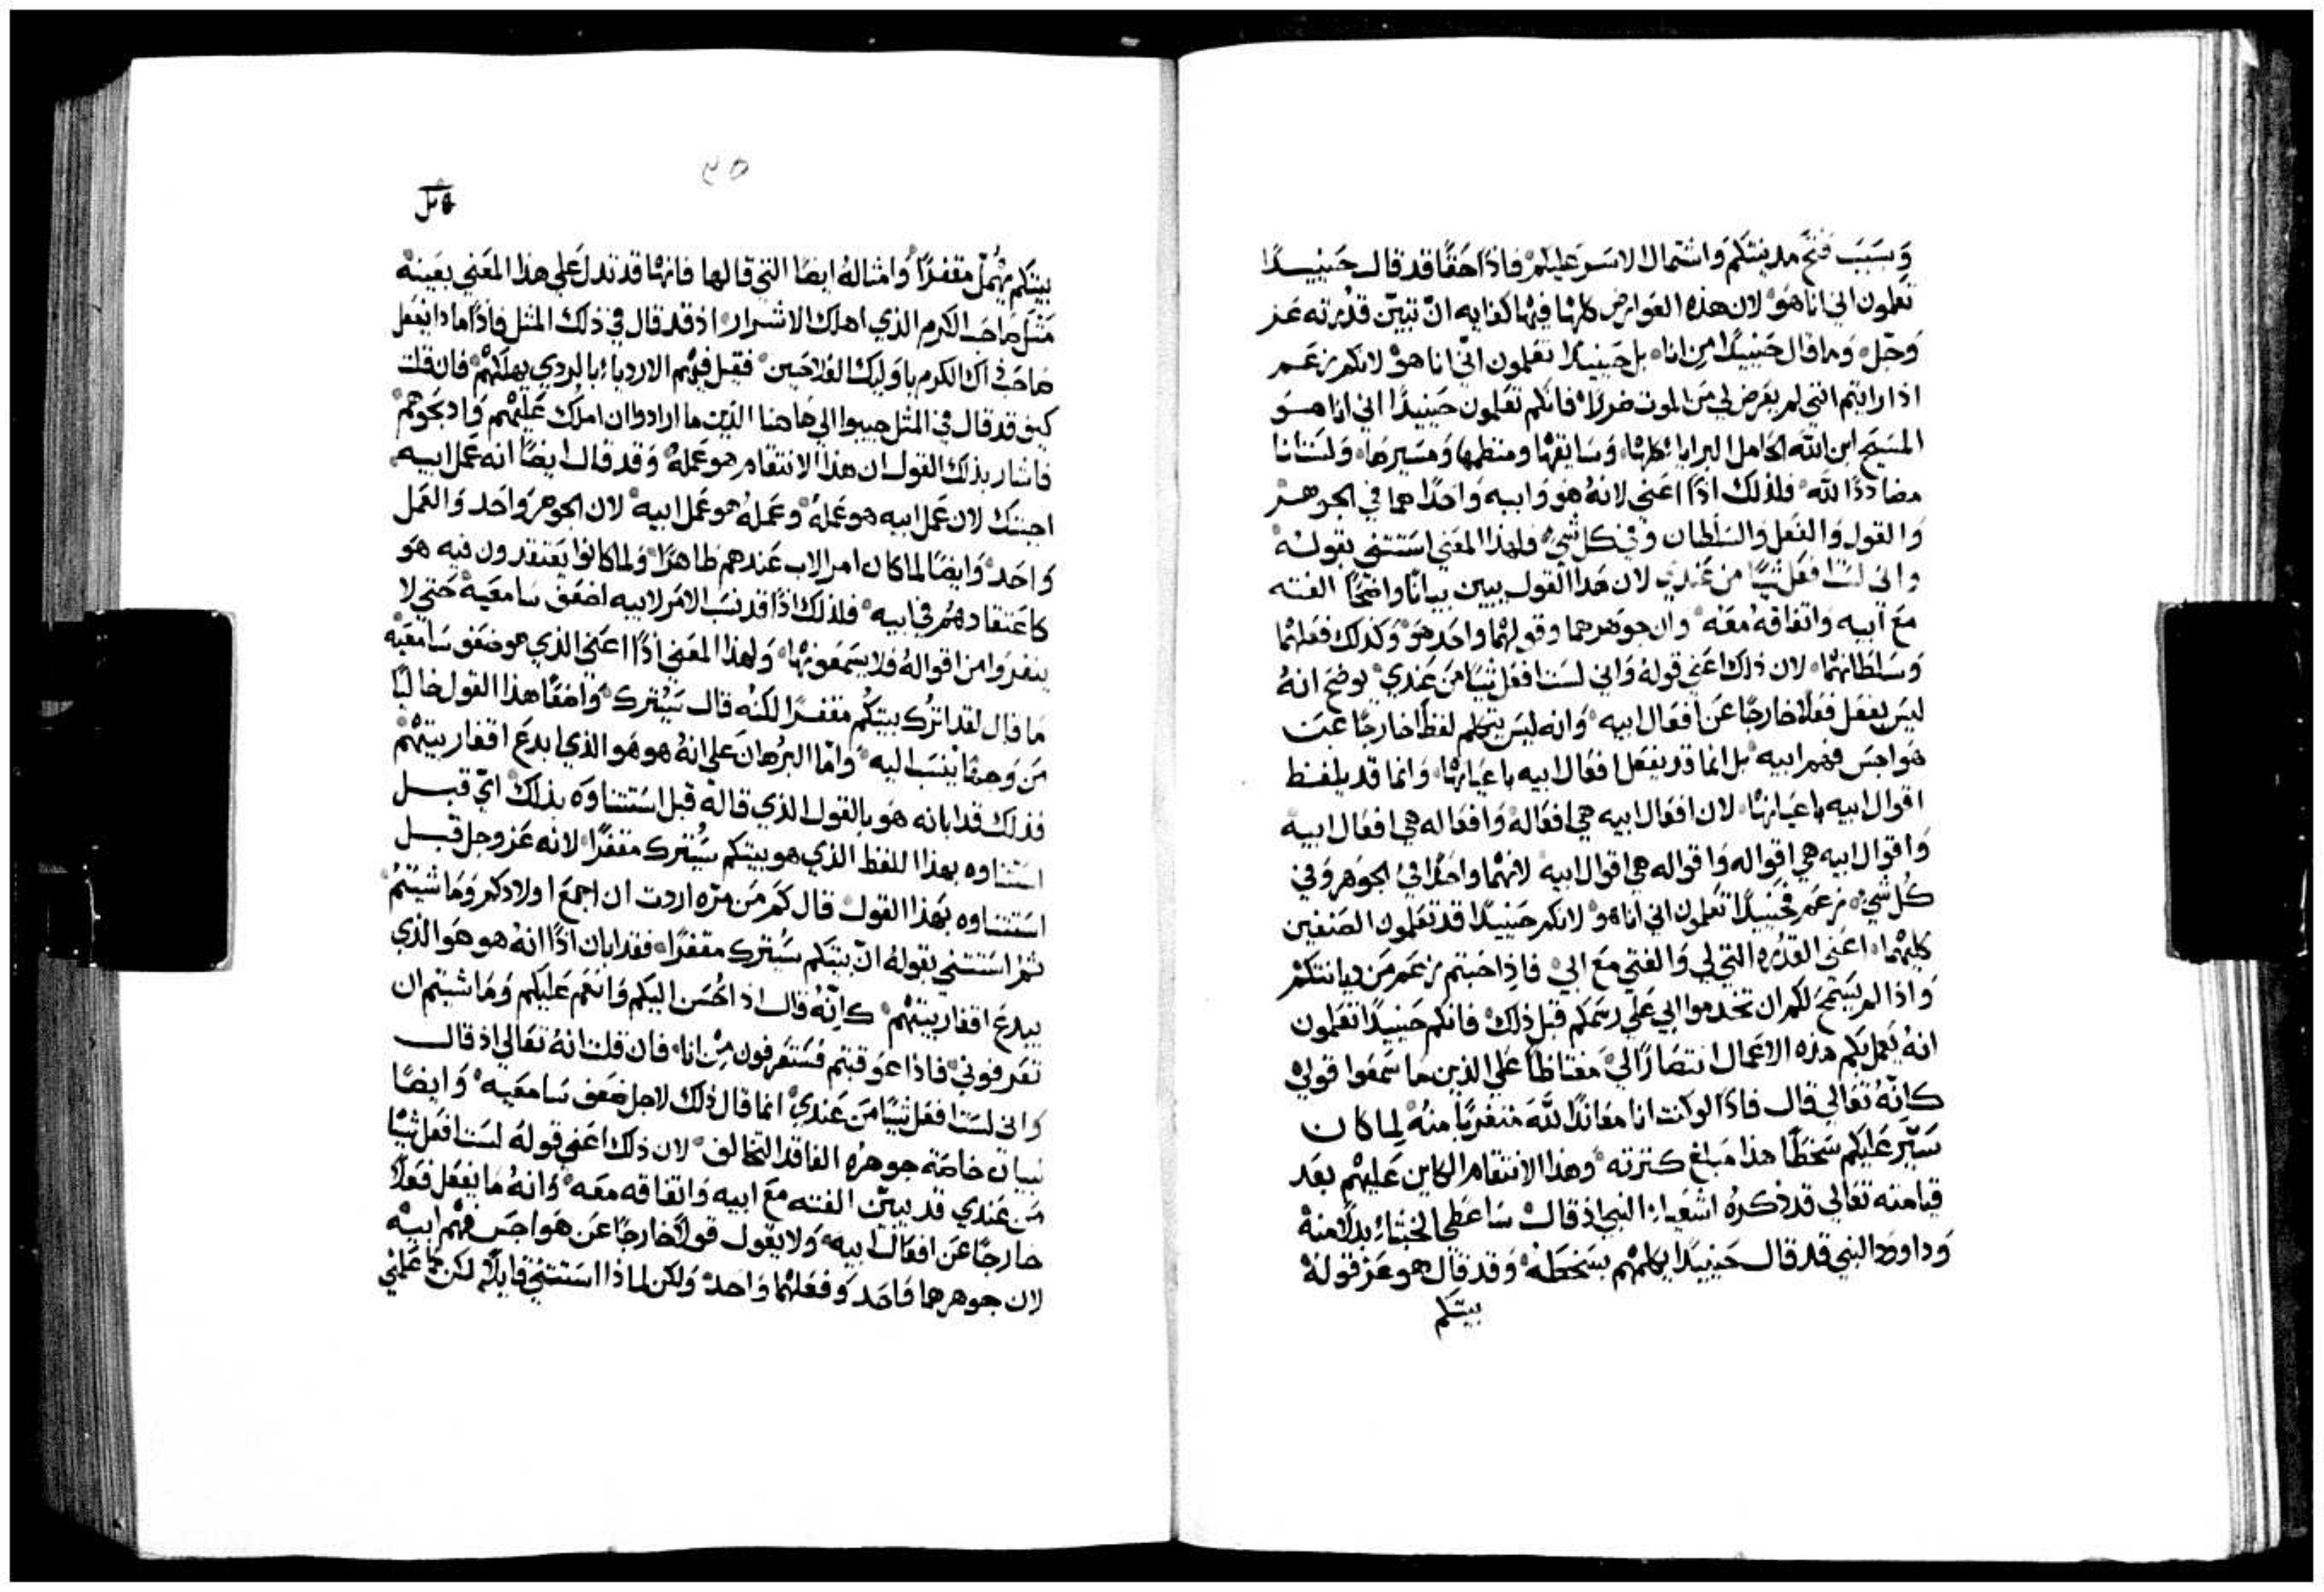 وبسبب فتح مدينتكم واشتمال الاسر عليكم فاذا حقا قد قال حينيدا
تعلمون اني انا هو لان هذه العوارض كلها فيها كفايه ان تبين قدرته عز
وجل وما قال حينيدا من انا بل حينيدا تعلمون انني انا هو لانكم زعم
اذا رايتم انني لم يعرض لي من الموت ضررا فانكم تعلمون حينيدا اني انا هو
المسيح ابن الله الحامل البرايا كلها وسايقها ومنظمها ومسيرها ولست انا
مضاددا لله فلذلك اذا اعني لانه هو وابيه واحدا هما في الجوهر
والقول والفعل والسلطان وفي كل شي فلهذا المعني استثني بقوله
واني لست افعل شيا من عندي لان هذا القول يبين بيانا واضحا الفته
مع ابيه واتفاقه معه وان جوهرهما وقولهما واحد هو وكذلك فعلهما
وسلطانهما لان ذلك اعني قوله واني لست افعل شيا من عندي يوضح انه
ليس يفعل فعلا خارجا عن افعال ابيه وانه ليس يتكلم لفظا خارجا عن
هواجس فهم ابيه بل انما قد يفعل افعال ابيه باعيانها وانما قد يلفظ
اقوال ابيه باعيانها لان افعال ابيه هي افعاله وافعاله هي افعال ابيه
واقوال ابيه هي اقواله واقواله هي اقوال ابيه لانهما واحدا في الجوهر وفي
كل شي زعم فحينيدا تعلمون اني انا هو لانكم حينيدا قد تعلمون الصنفين
كليهما اعني القدره التي لي والفتي مع ابي فاذا خبتم زعم من ديانتكم
واذا لم يستمح لكم ان تخدموا ابي علي رسمكم قبل ذلك فانكم حينيدا تعلمون
انه يعمل بكم هذه الاعمال انتصارا لي مغتاظا علي الذين ما سمعوا قولي
كانه تعالي قال فاذا لو كنت انا معاندا لله متغربا منه لما كان
سير عليكم سخطا هذا مبلغ كثرته وهذا الانتقام الكاين عليهم بعد
قيامته تعالي قد ذكره اشعياء النبي اذ قال ساعطي الخبثاء بدلا منه
وداوود النبي قد قال حينيدا يكلمهم بسخطه وقد قال هو عز قوله
بيتكم
٣٥
بيتكم يهمل مقفرا وامثاله ايضا التي قالها فانها قد تدل علي هذا المعني بعينه
مثل صاحب الكرم الذي اهلك الاشرار اذ قد قال في ذلك المثل فاذا ماذا يفعل
صاحب ذاك الكرم باوليك الفلاحين فقيل فيهم الاردياء بالردي يهلكهم فان قلت
كيف قد قال في المثل جيبوا الي هاهنا الذين ما ارادوا ان املك عليهم وادبحوهم
فاشار بذلك القول ان هذا الانتقام هو عمله وقد قال ايضا انه عمل ابيه
اجبتك لان عمل ابيه هو عمله وعمله هو عمل ابيه لان الجوهر واحد والعمل
واحد وايضا لما كان امر الاب عندهم ظاهرا ولما كانوا يعتقدون فيه هو
كاعتقادهم في ابيه فلذلك اذا قد نسب الامر لابيه اضعف سامعيه حتي لا
ينفروا من اقواله فلا يسمعونها ولهذا المعني اذا اعني الذي هو ضعف سامعيه
ما قال لقد اترك بيتكم مقفرا لكنه قال سيترك واضعا هذا القول خاليا
من وجهه ينسب اليه واما البرهان علي انه هو هو الذي ابدع اقفار بيتهم
فذلك قد ابانه هو بالقول الذي قاله قبل استثناوه بذلك اي قبل
استثناوه بهذا اللفظ الذي هو بيتكم سيترك مقفرا لانه عز وجل قبل
استثناوه بهذا القول قال كم من مره اردت ان اجمع اولادكم وما شيتم
ثم استثني بقوله ان بيتكم سيترك مقفرا فقد ابان اذا انه هو هو الذي
يبدع اقفار بيتهم كانه قال اذ احسن اليكم وانعم عليكم وما شيتم ان
تعرفوني فاذا عوقبتم فستعرفون من انا فان قلت انه تعالي اذ قال
واني لست افعل شيا من عندي انما قال ذلك لاجل ضعف سامعيه وايضا
لبيان خاصة جوهره الفاقد التخالف لان ذلك اعني قوله لست افعل شيا
من عندي قد يبين الفته مع ابيه واتفاقه معه وانه ما يفعل فعلا
خارجا عن افعال ابيه ولا يقول قولا خارجا عن هواجس فهم ابيه
لان جوهرهما واحد وفعلهما واحد ولكن لماذا استثني قايلا لكن كما علمني